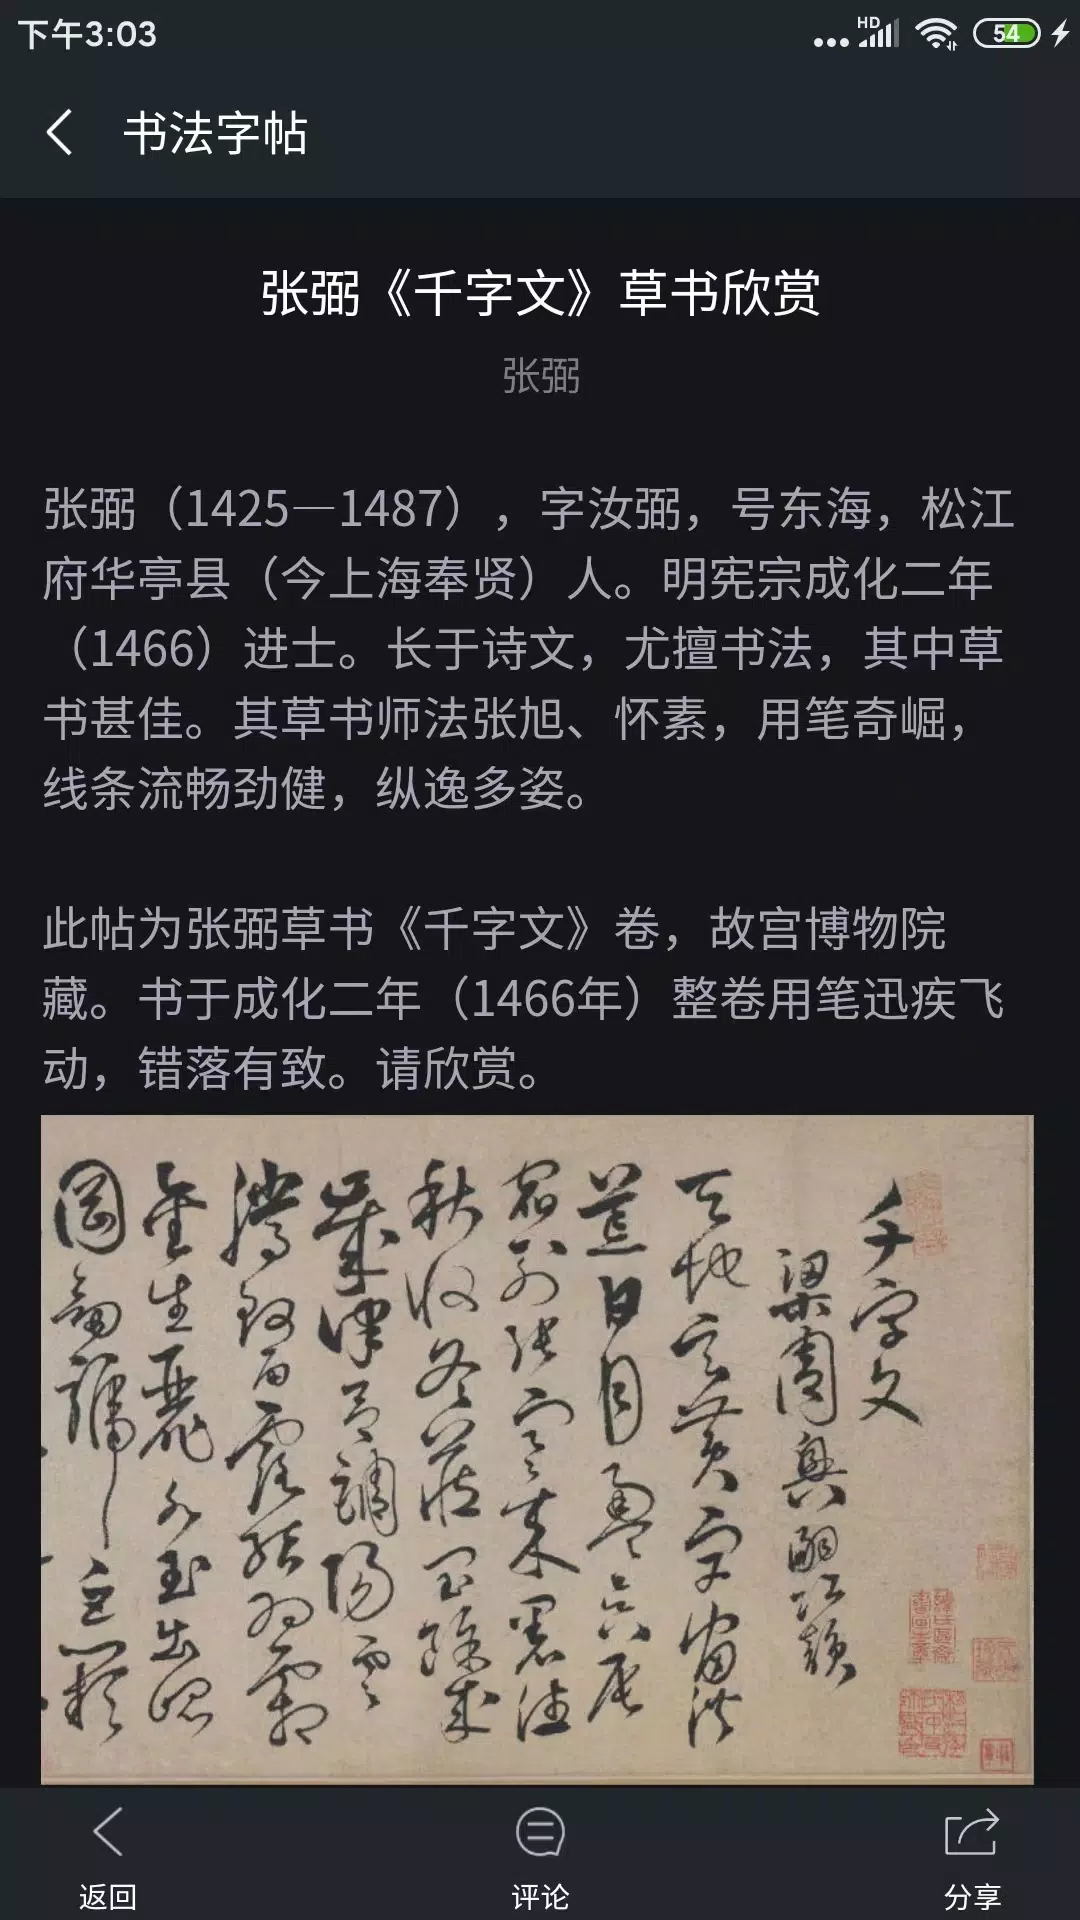 下午3:03
HD
54
书法字帖
张弼《千字文》草书欣赏
张弼
张弼（1425—1487），字汝弼，号东海，松江
府华亭县（今上海奉贤）人。明宪宗成化二年
（1466）进士。长于诗文，尤擅书法，其中草
书甚佳。其草书师法张旭、怀素，用笔奇崛，
线条流畅劲健，纵逸多姿。
此帖为张弼草书《千字文》卷，故宫博物院
藏。书于成化二年（1466年）整卷用笔迅疾飞
动，错落有致。请欣赏。
千字文
梁周興嗣次韻
天地玄黃宇宙洪
荒日月盈昃辰
宿列張寒來暑往
秋收冬藏閏餘成
歲律呂調陽雲
騰致雨露結為霜
金生麗水玉出崑
岡劍號巨闕珠
返回
评论
分享